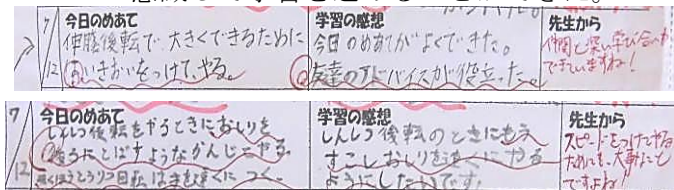 7/12
今日のめあて
伸膝後転で大きくできるために
いきおいをつけて、やる。
学習の感想
今日のめあてがよくできた。
友達のアドバイスが役立った。
先生から
仲間と深い学び合いが
できていますね!
7/12
今日のめあて
しんしつ後転をやるときにおしりを
遠うにとばすようなかんじでやる。
学習の感想
しんしつ後転のときにもう
すこしおしりを遠くにやる
ようにしたいです。
先生から
スピードをつけてやる
ためにも、大事なこと
ですよね!